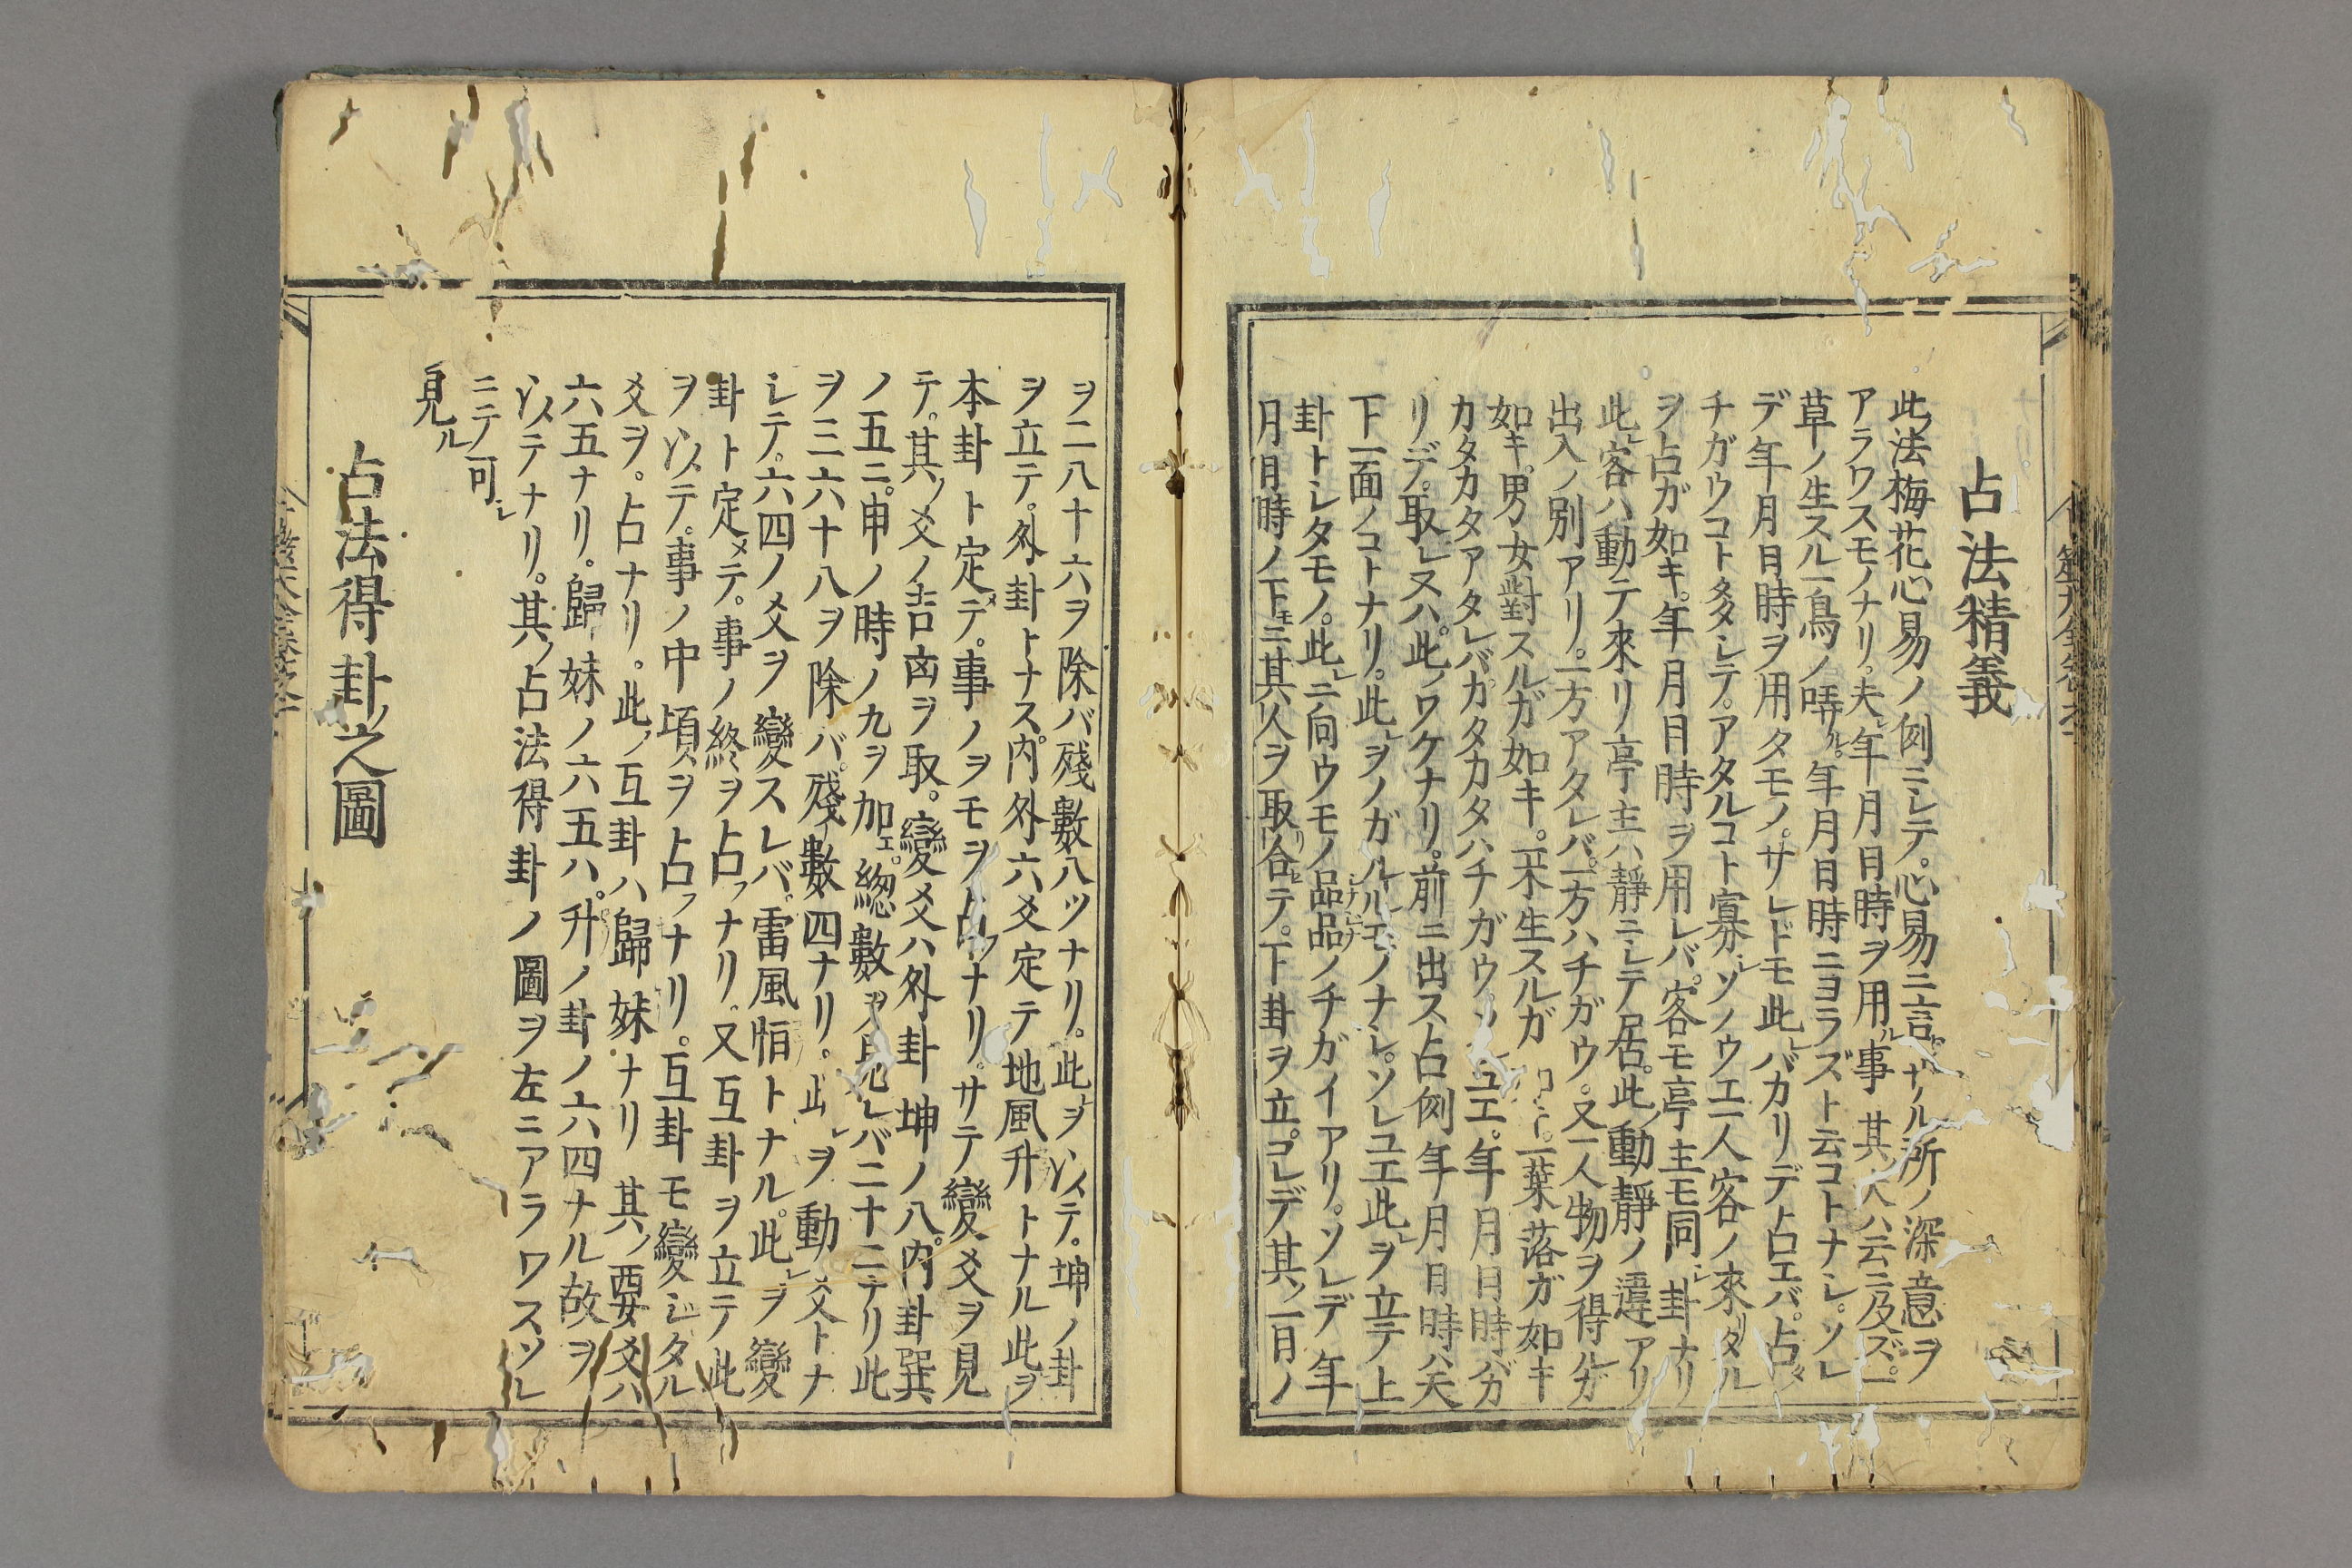 占法精義
此ノ法梅花心易ノ例ニシテ。心易ニ言ザル所ノ深意ヲ
アラワスモノナリ。夫レ年月日時ヲ用ル事其人ハ云ニ及ズ。一
草ノ生スル一鳥ノ哢ル。年月日時ニヨラズト云コトナシ。ソレ
デ年月日時ヲ用タモノ。サレドモ此レバカリデ占エバ。占
チガウコト多シテ。アタルコト寡シ。ソノウエ一人客ノ來リタル
ヲ占ガ如キ。年月日時ヲ用レバ。客モ亭主モ同シ卦ナリ
此レ客ハ動テ來リ亭主ハ靜ニシテ居。此ノ動靜ノ違アリ
出入ノ別アリ。一方アタレバ。一方ハチガウ。又一人物ヲ得ルガ
如キ。男女對スルガ如キ。一木生スルガ一葉落ガ如キ
カタカタアタレバカタカタハチガウソユエ。年月日時バカ
リデ。取レ又ハ。此ノワケナリ。前ニ出ス占例年月日時ハ天
下一面ノコトナリ。此レヲノガルルモノナシ。ソレユエ此レヲ立テ上
卦トシタモノ。此レニ向ウモノ品品ノチガイアリ。ソレデ年
月日時ノ下モニ其人ヲ取リ合セテ。下卦ヲ立。コレデ其ノ一日ノ
ヲ二八十六ヲ除バ殘數八ツナリ。此ヲ以テ。坤ノ卦
ヲ立テ。外卦トナス。内外六爻定テ地風升トナル此ヲ
本卦ト定メテ。事ノヲモヲ占フナリ。サテ變爻ヲ見
テ。其ノ爻ノ吉凶ヲ取。變爻ハ外卦坤ノ八。内卦巽
ノ五ニ。申ノ時ノ九ヲ加エ。總數ヲ見レバ二十二ナリ此
ヲ三六十八ヲ除バ。殘數四ナリ。此レヲ動爻トナ
シテ。六四ノ爻ヲ變スレバ。雷風恒トナル。此レヲ變
卦ト定メテ。事ノ終ヲ占フナリ。又互卦ヲ立テ此
ヲ以テ。事ノ中頃ヲ占フナリ。互卦モ變ジタル
爻ヲ。占ナリ。此ノ互卦ハ歸妹ナリ其ノ要爻ハ
六五ナリ。歸妹ノ六五ハ。升ノ卦ノ六四ナル故ヲ
以テナリ。其ノ占法得卦ノ圖ヲ左ニアラワスソレ
ニテ可シ
見ル
占法得卦ノ之圖